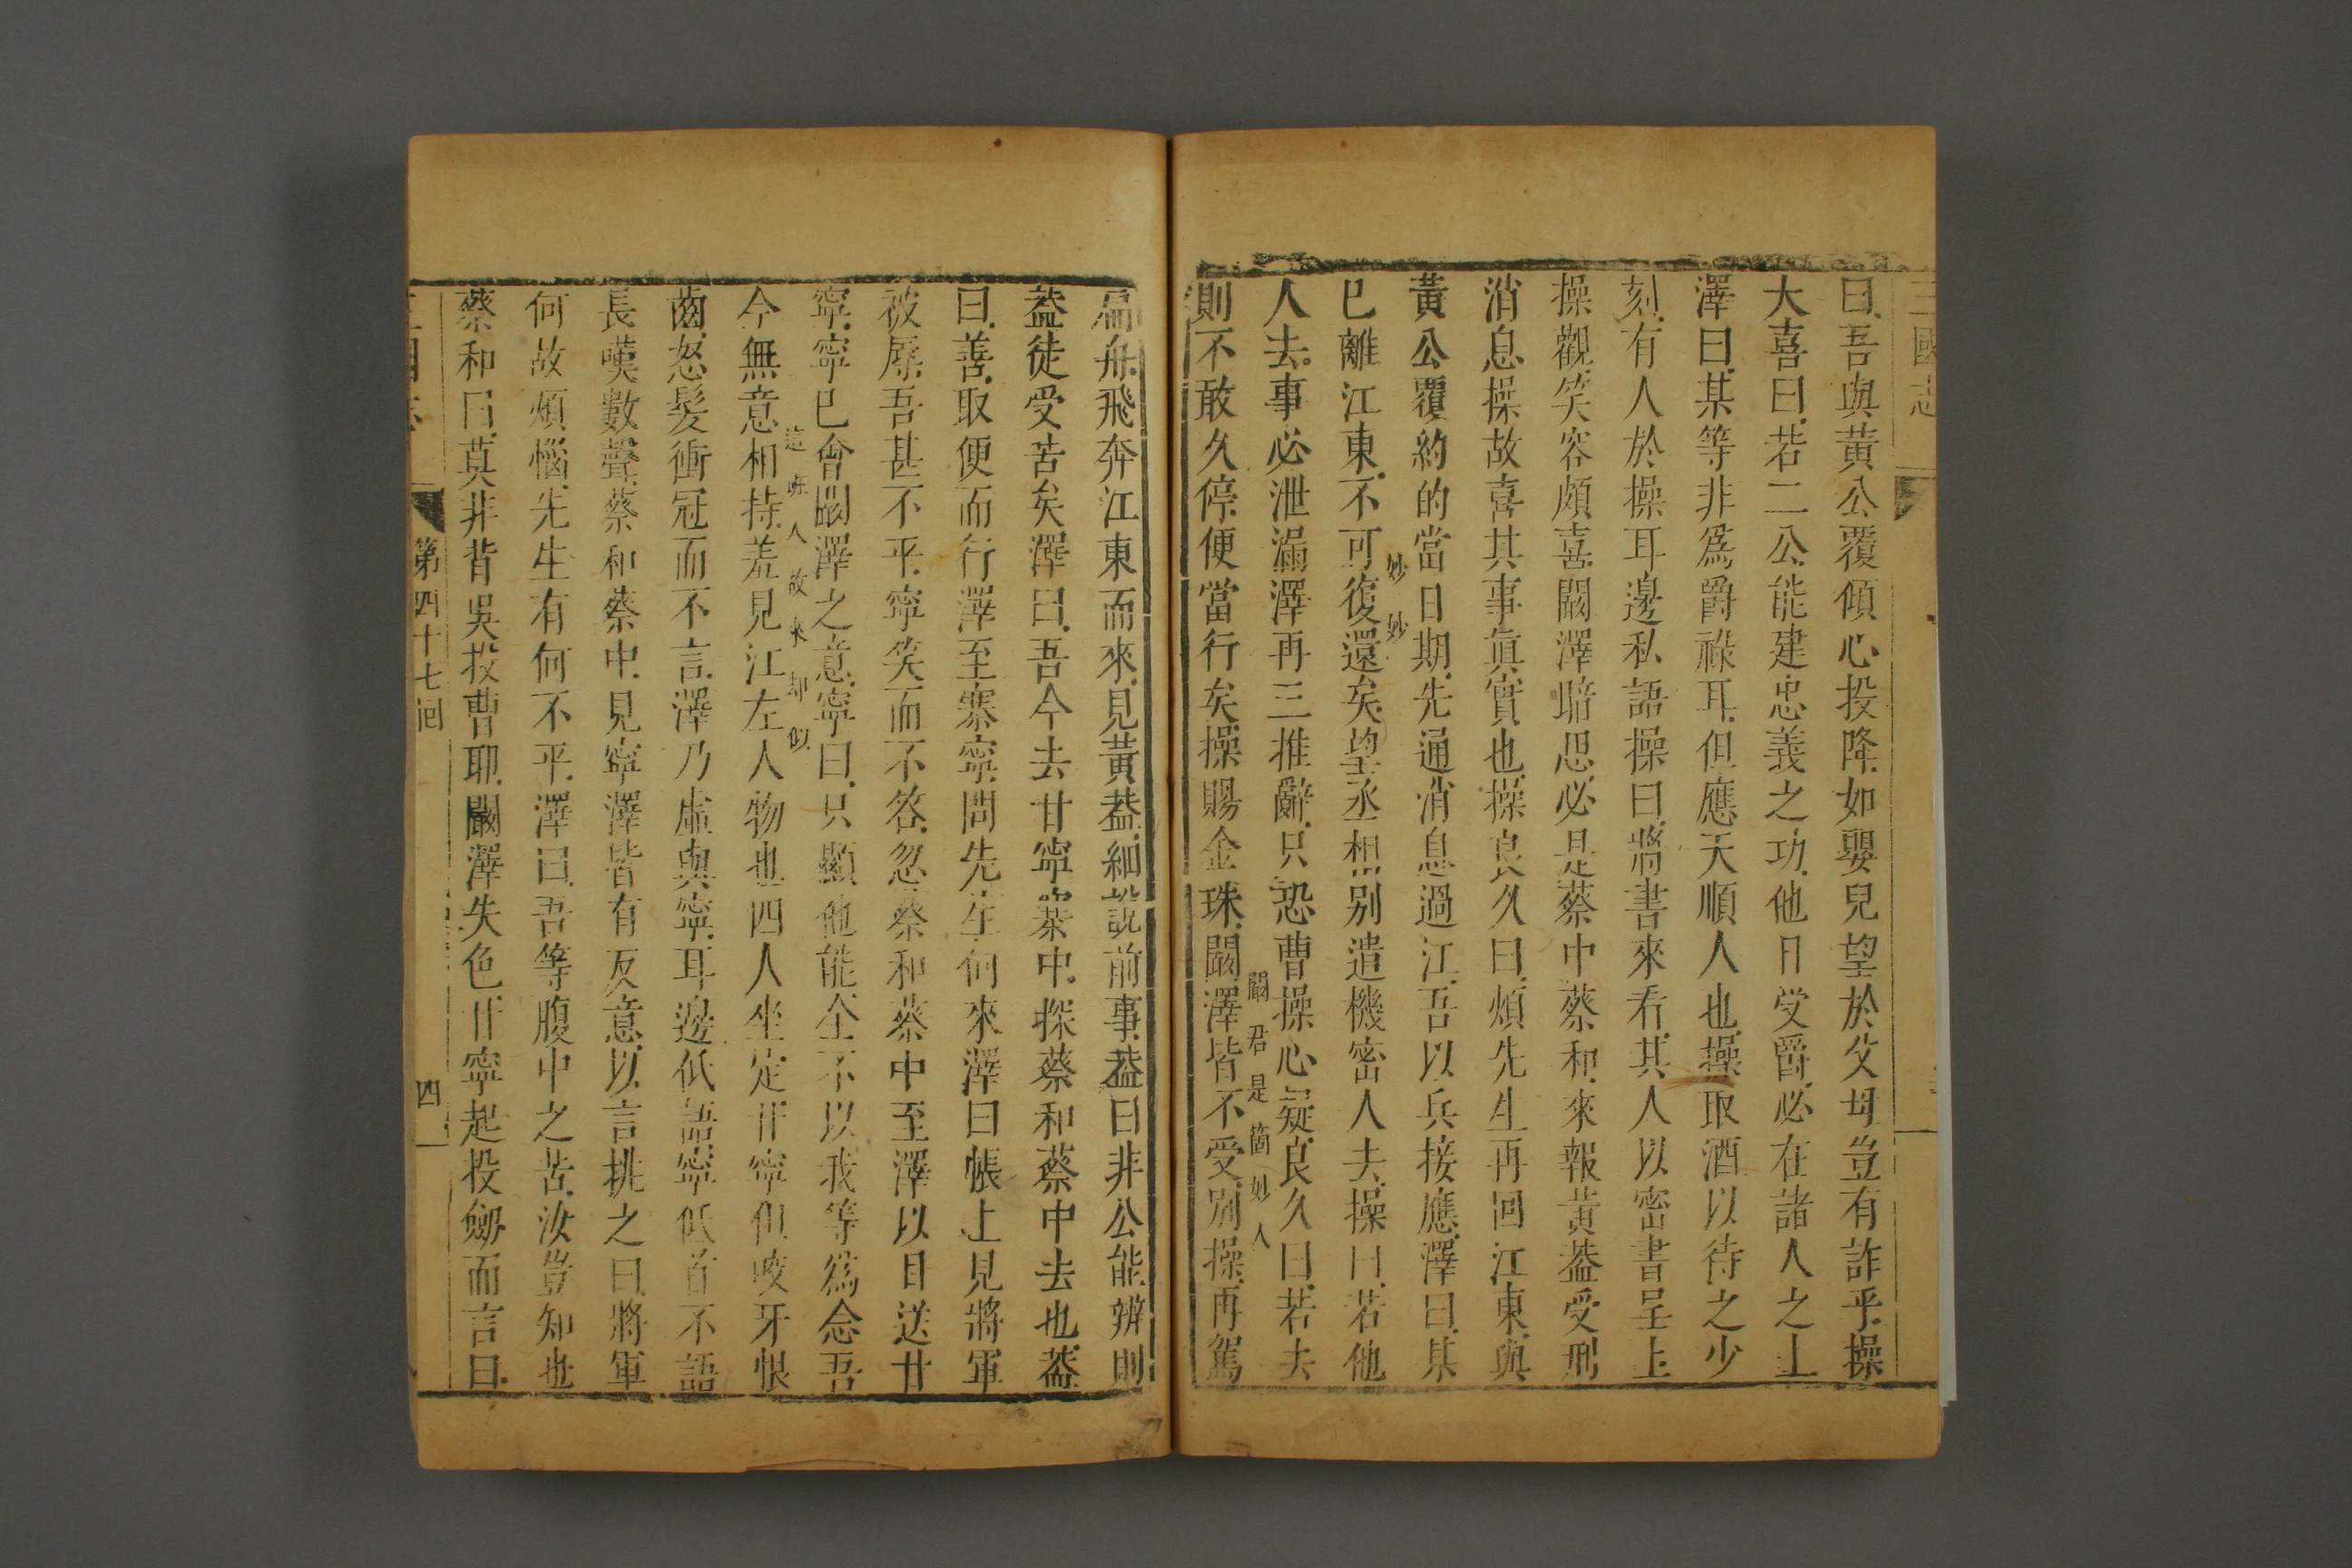 三國志
曰吾與黃公覆傾心投降如嬰兒望於父母豈有詐乎操
大喜曰若二公能建忠義之功他日受爵必在諸人之上
澤曰某等非爲爵祿耳但應天順人也操取酒以待之少
刻有人於操耳邊私語操曰將書來看其人以密書呈上
操觀笑容頗喜闞澤暗思必是蔡中蔡和來報黃葢受刑
消息操故喜其事眞實也操良久曰煩先生再回江東與
黃公覆約的當日期先通消息過江吾以兵接應澤曰某
妙妙
已離江東不可復還矣望丞相別遣機密人去操曰若他
人去事必泄漏澤再三推辭只恐曹操心疑良久曰若去
闞君是箇妙人
則不敢久停便當行矣操賜金珠闞澤皆不受別操再駕
扁舟飛奔江東而來見黃葢細說前事葢曰非公能辨則
葢徒受苦矣澤曰吾今去甘寧寨中探蔡和蔡中去也葢
曰善取便而行澤至寨寧問先生何來澤曰帳上見將軍
被辱吾甚不平寧笑而不答忽蔡和蔡中至澤以目送甘
寧寧已會闞澤之意寧曰只顯他能全不以我等爲念吾
這班人故來却似
今無意相持羞見江左人物也四人坐定甘寧但咬牙恨
齒怒髮衝冠而不言澤乃虛與寧耳邊低語寧低首不語
長嘆數聲蔡和蔡中見寧澤皆有反意以言挑之曰將軍
何故煩惱先生有何不平澤曰吾等腹中之苦汝豈知也
蔡和曰莫非背吳投曹耶闞澤失色甘寧起投劒而言曰
第四十七囘
四